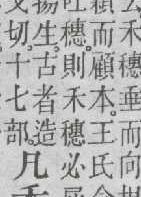 禾穗垂而向
穎而顧本。王氏
吐穗。則禾穗必
揚生。古者造
切。十七部。
凡